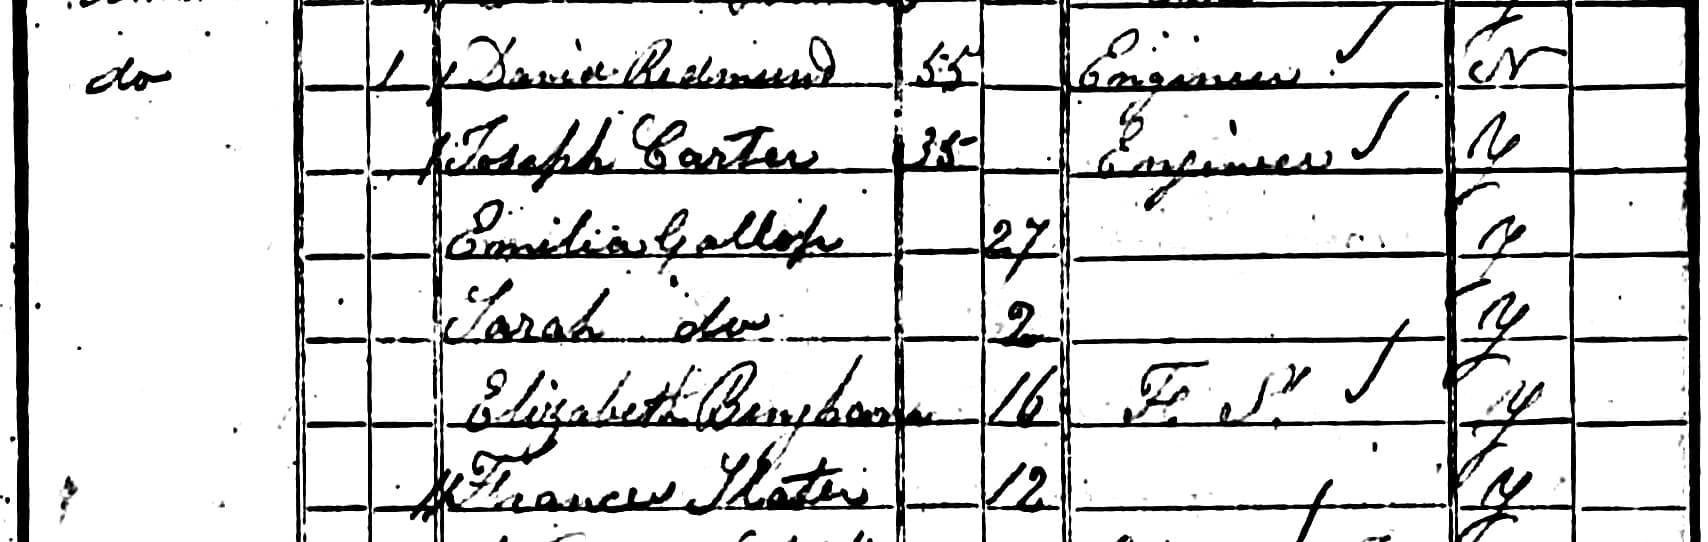 do 1 David Redmund 55 Engineer N
Joseph Carter 35 Engineer Y
Emilia Gallop 27 Y
Sarah do 2 Y
Elizabeth Bingham 16 F. S. Y
Frances Slater 12 Y